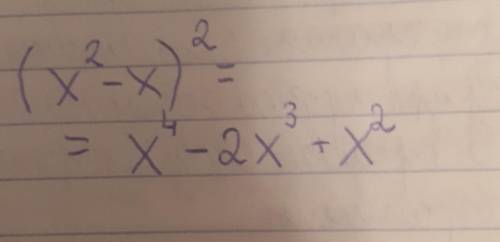 (x² - x)² =
= x⁴ - 2x³ + x²